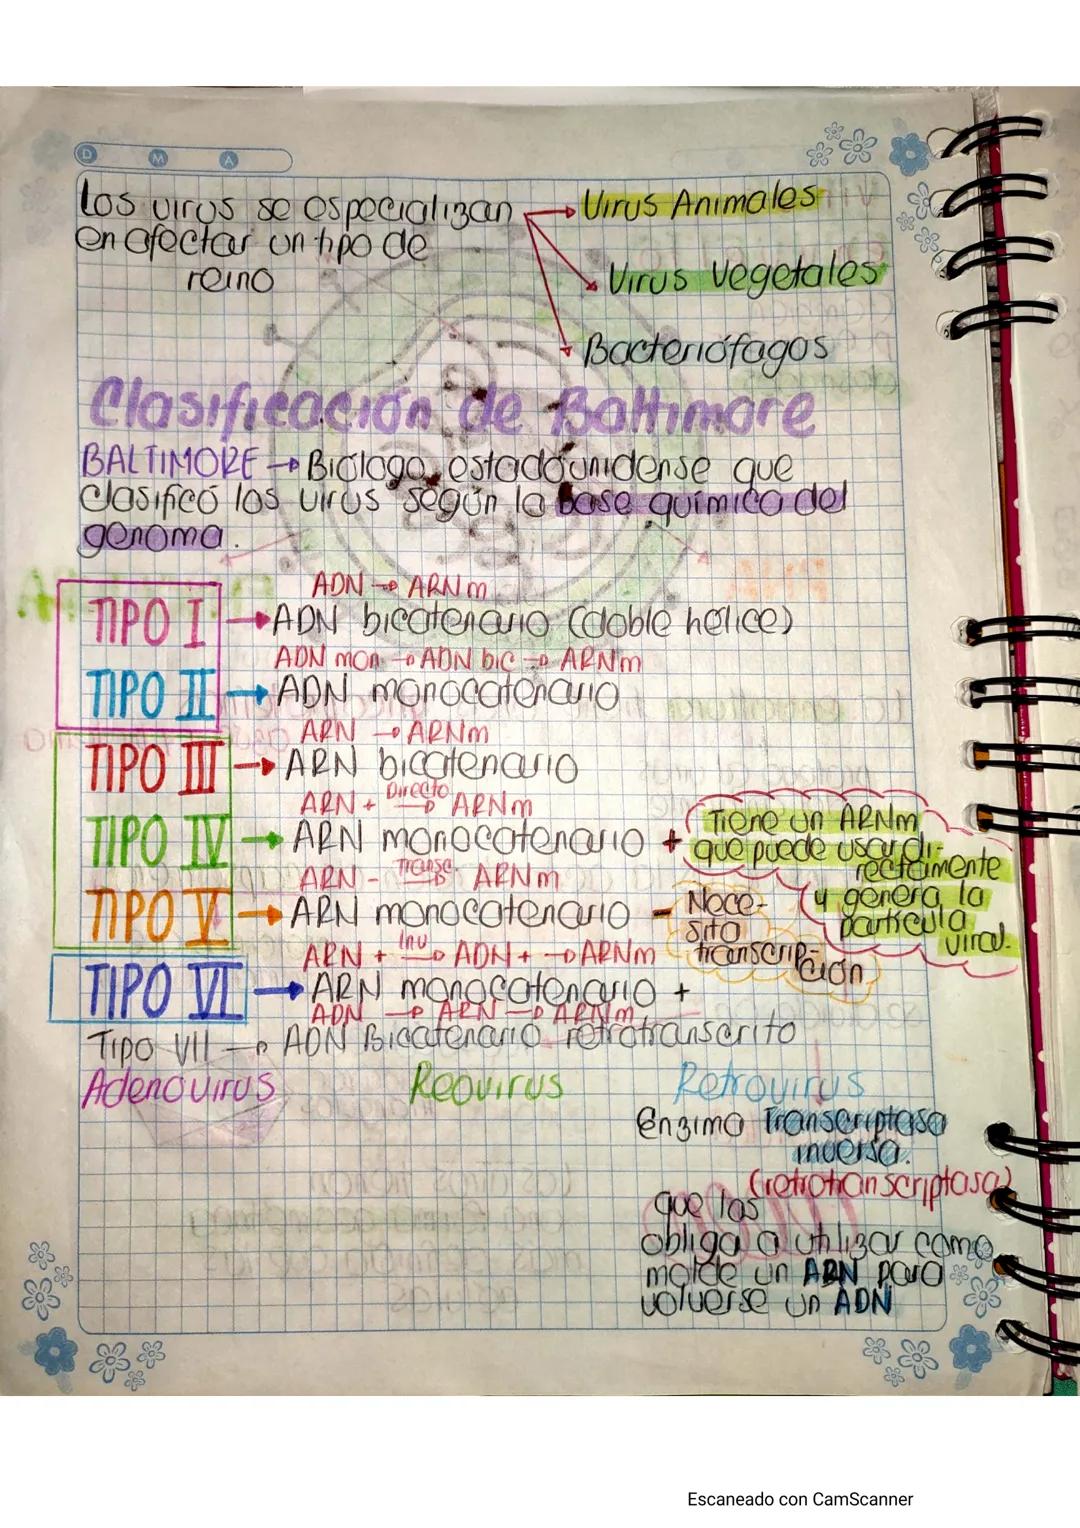 D M A
Los virus se especializan
en afectar un tipo de
reino
Virus Animales
Virus Vegetales
Bacteriófagos
Clasificación de Baltimore
BALTIMORE → Biólogo estadounidense que
clasificó los virus según la base química del
genoma.
ADN → ARNm
TIPO I → ADN bicatenario (doble hélice)
ADN mon → ADN bic → ARNm
TIPO II → ADN monocatenario
ARN → ARNm
TIPO III → ARN bicatenario
Directo
ARN + → ARNm
TIPO IV → ARN monocatenario +
Tiene un ARNm
que puede usar di-
rectamente
y genera la
partícula
viral.
Transc.
ARN - → ARNm
TIPO V → ARN monocatenario -
Nece-
sita
transcrip-
ción
Inv
ARN + → ADN + → ARNm
TIPO VI → ARN monocatenario +
ADN → ARN → ARNm
Tipo VII → ADN Bicatenario retrotranscrito
Adenovirus
Reovirus
Retrovirus
Enzima Transcriptasa
inversa.
(retrotranscriptasa)
que los
obliga a utilizar como
molde un ARN para
volverse un ADN
Escaneado con CamScanner